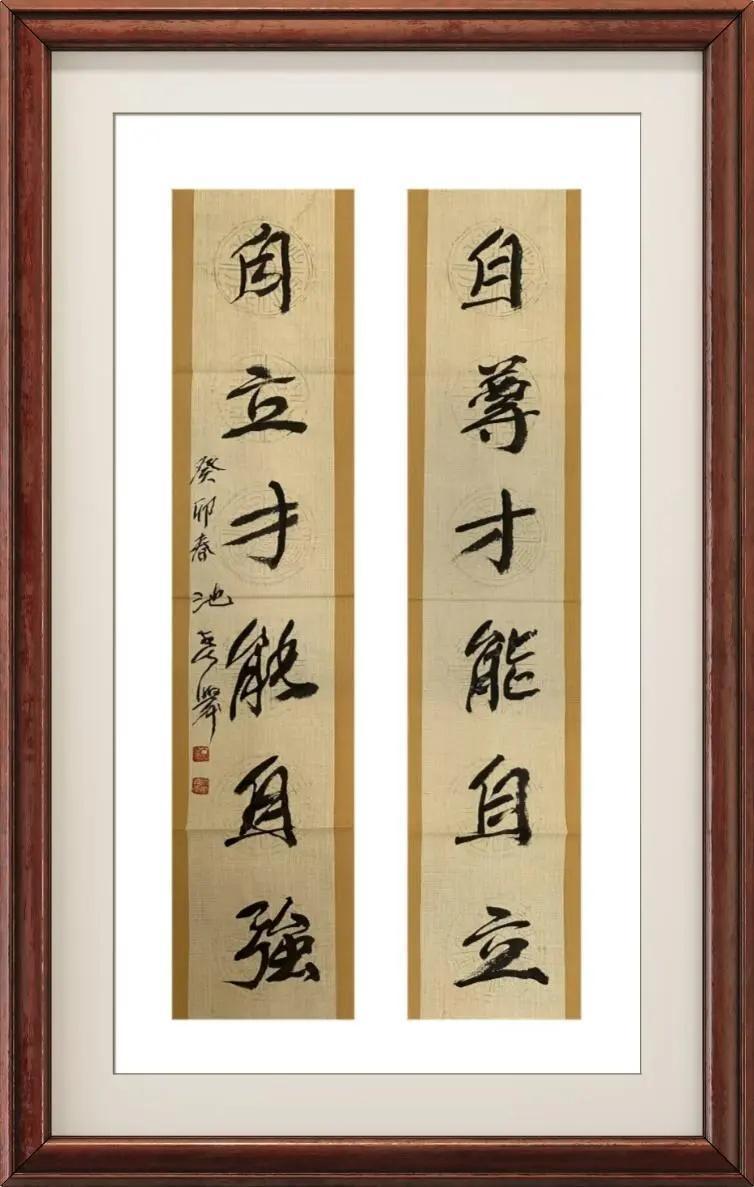 自尊才能自立
自立才能自強
癸卯春 池